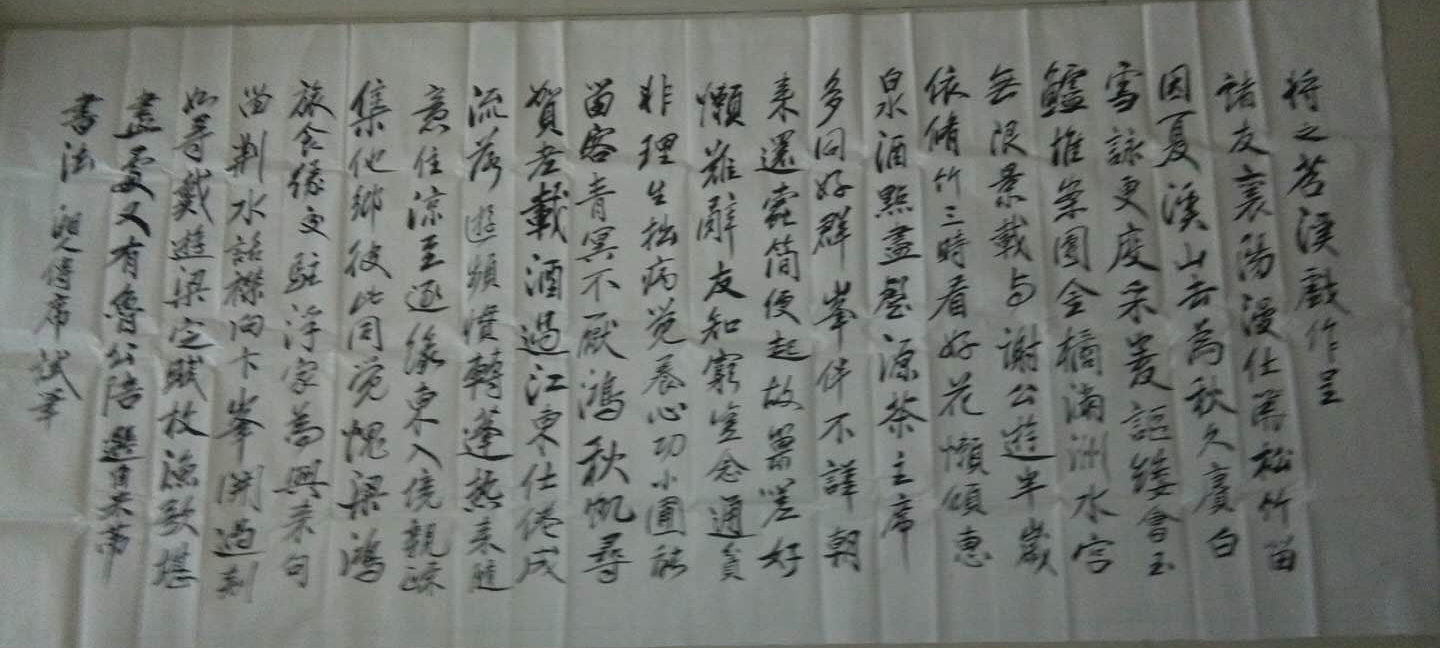 将之苕溪戲作呈
諸友襄陽漫仕黻松竹留
因夏溪山去為秋久賡白
雪詠更度采菱謳縷會玉
鱸堆案團金橘滿洲水宮
無限景載与謝公遊半歲
依脩竹三時看好花懶傾惠
泉酒點盡壑源茶主席
多同好群峯伴不譁朝
来還蠹簡便起故巢嗟好
懶難辭友知窮豈念通貧
非理生拙病覺養心功小圃能
留客青冥不厭鴻秋帆尋
賀老載酒過江東仕倦成
流落遊頻慣轉蓬熱来隨
意住涼至逐緣東入境親疎
集他鄉彼此同覺愧梁鴻
旅食緣更駐浮家為興来句
留荆水話襟向卞峯開過剡
如尋戴遊梁定賦枚漁歌堪
盡處又有魯公陪 選自米芾
書法 傳席試筆